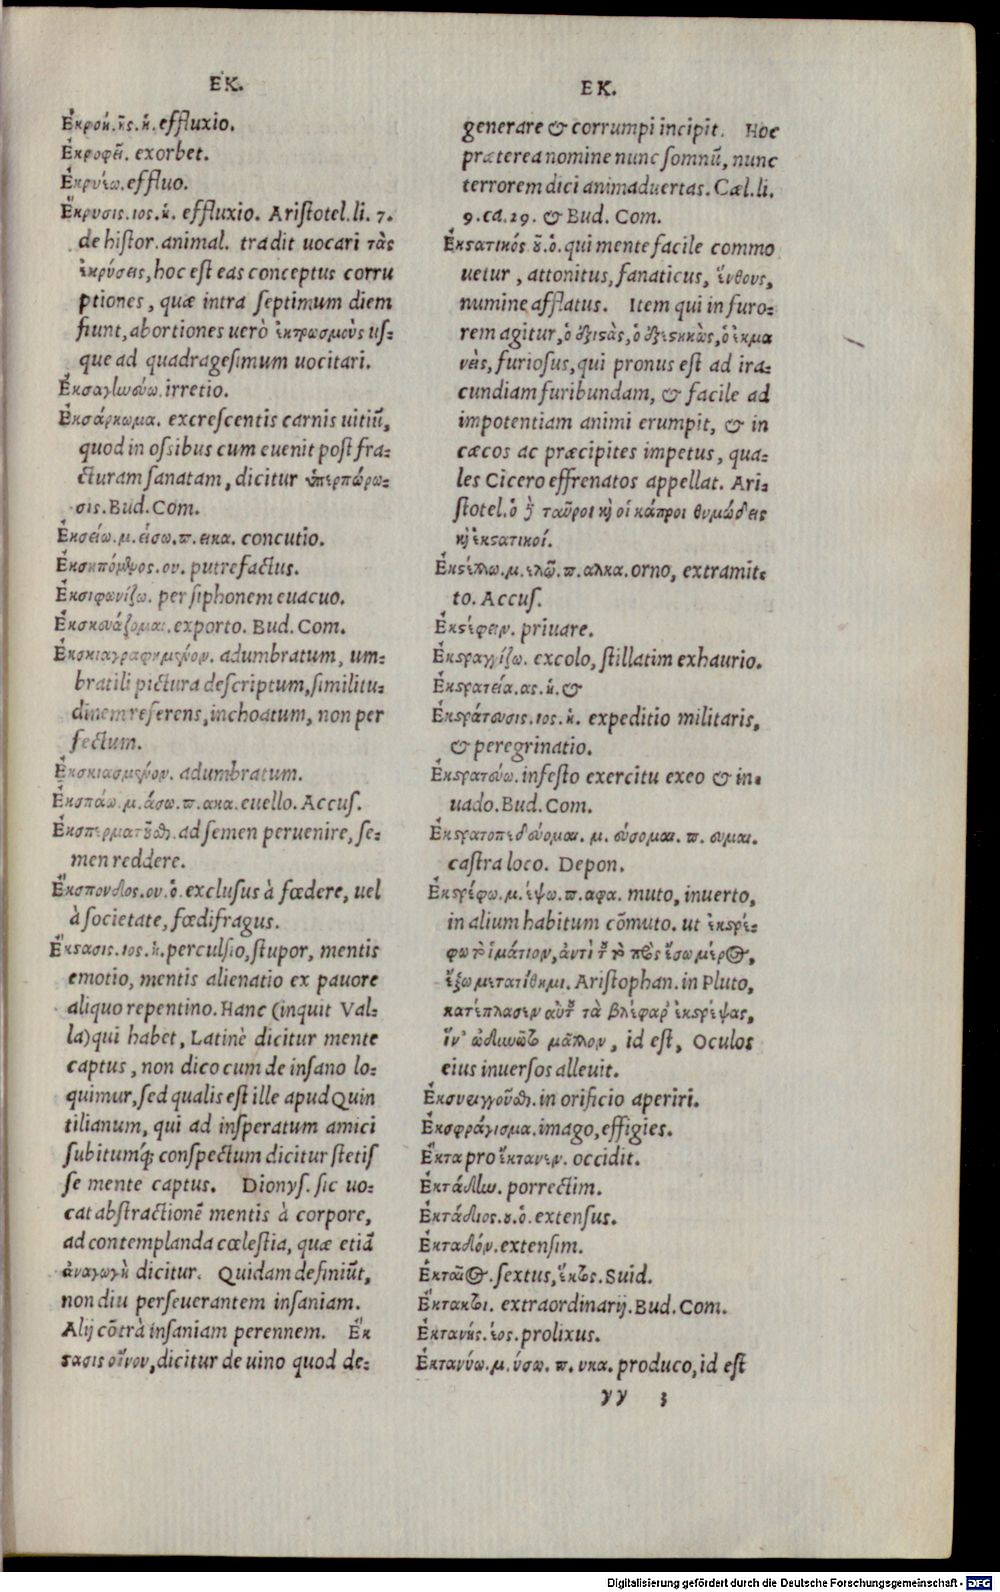 ΕΚ.
Ἐκροή.ῆς.ἡ.effluxio.
Ἐκροφεῖ. exorbet.
Ἐκρυέω.effluo.
Ἔκρυσις.ιος.ἡ. effluxio. Aristotel.li. 7.
de histor.animal. tradit uocari τὰς
ἐκρύσεις, hoc est eas conceptus corru
ptiones, quæ intra septimum diem
fiunt, abortiones uerò ἐκτρωσμοὺς us-
que ad quadragesimum uocitari.
Ἐκσαγηνεύω.irretio.
Ἐκσάρκωμα. excrescentis carnis uitiũ,
quod in ossibus cum euenit post fra-
cturam sanatam, dicitur ὑπερπώρω-
σις.Bud.Com.
Ἐκσείω.μ.είσω.π.εικα. concutio.
Ἐκσηπόμενος.ου. putrefactus.
Ἐκσιφωνίζω. per siphonem euacuo.
Ἐκσκευάζομαι.exporto. Bud. Com.
Ἐκσκιαγραφημένον. adumbratum, um-
bratili pictura descriptum, similitu-
dinem referens, inchoatum, non per
fectum.
Ἐκσκιασμένον. adumbratum.
Ἐκσπάω.μ.άσω.π.ακα.euello.Accus.
Ἐκσπερματοῦσθαι.ad semen peruenire, se-
men reddere.
Ἔκσπονδος.ου.ὁ.exclusus à fœdere, uel
à societate, fœdifragus.
Ἔκστασις.ιος.ἡ.perculsio, stupor, mentis
emotio, mentis alienatio ex pauore
aliquo repentino. Hanc (inquit Val-
la) qui habet, Latinè dicitur mente
captus, non dico cum de insano lo-
quimur, sed qualis est ille apud Quin
tilianum, qui ad insperatum amici
subitumq́; conspectum dicitur stetis
se mente captus. Dionys. sic uo-
cat abstractionẽ mentis à corpore,
ad contemplanda cœlestia, quæ etiã
ἀναγωγὴ dicitur. Quidam definiũt,
non diu perseuerantem insaniam.
Alij cõtrà insaniam perennem. Ἔκ
στασις οἴνου, dicitur de uino quod de-
ΕΚ.
generare & corrumpi incipit. Hoc
præterea nomine nunc somnũ, nunc
terrorem dici animaduertas. Cæl. li.
9.ca.29. & Bud. Com.
Ἐκστατικός ȣ̃.ὁ.qui mente facile commo
uetur, attonitus, fanaticus, ἔνθους,
numine afflatus. Item qui in furo-
rem agitur, ὁ ἐξιστὰς, ὁ ἐξεστηκὼς, ὁ ἐκμα
νεὶς, furiosus, qui pronus est ad ira-
cundiam furibundam, & facile ad
impotentiam animi erumpit, & in
cæcos ac præcipites impetus, qua-
les Cicero effrenatos appellat. Ari-
stotel. ὁ δὲ ταῦροι καὶ οἱ κάπροι θυμώδεις
καὶ ἐκστατικοί.
Ἐκστέλλω.μ.ελῶ.π.αλκα.orno, extramit-
to. Accus.
Ἐκστέφειν. priuare.
Ἐκστραγγίζω. excolo, stillatim exhaurio.
Ἐκστρατεία.ας.ἡ.&
Ἐκστράτευσις.ιος.ἡ. expeditio militaris,
& peregrinatio.
Ἐκστρατεύω.infesto exercitu exeo & in-
uado. Bud. Com.
Ἐκστρατοπεδεύομαι. μ. εύσομαι. π. ευμαι.
castra loco. Depon.
Ἐκστρέφω.μ.έψω.π.αφα. muto, inuerto,
in alium habitum cõmuto. ut ἐκστρέ-
φω τὸ ἱμάτιον, ἀντὶ τοῦ τὸ πρὸς ἔσω μέρος,
ἔξω μετατίθημι. Aristophan. in Pluto,
κατέπλασεν αὐτοῦ τὰ βλέφαρ' ἐκστρέψας,
ἵν' ὀδυνῷτο μᾶλλον, id est, Oculos
eius inuersos alleuit.
Ἐκσυειγγοῦσθαι.in orificio aperiri.
Ἐκσφράγισμα.imago, effigies.
Ἔκτα pro ἔκτανεν. occidit.
Ἐκτάδην. porrectim.
Ἐκτάδιος.ȣ.ὁ.extensus.
Ἐκταδόν.extensim.
Ἐκταῖος.sextus, ἕκτος.Suid.
Ἔκτακτοι. extraordinarij. Bud. Com.
Ἐκτανής.έος.prolixus.
Ἐκτανύω.μ.ύσω. π. υκα. produco, id est
yy 3
Digitalisierung gefördert durch die Deutsche Forschungsgemeinschaft - DFG